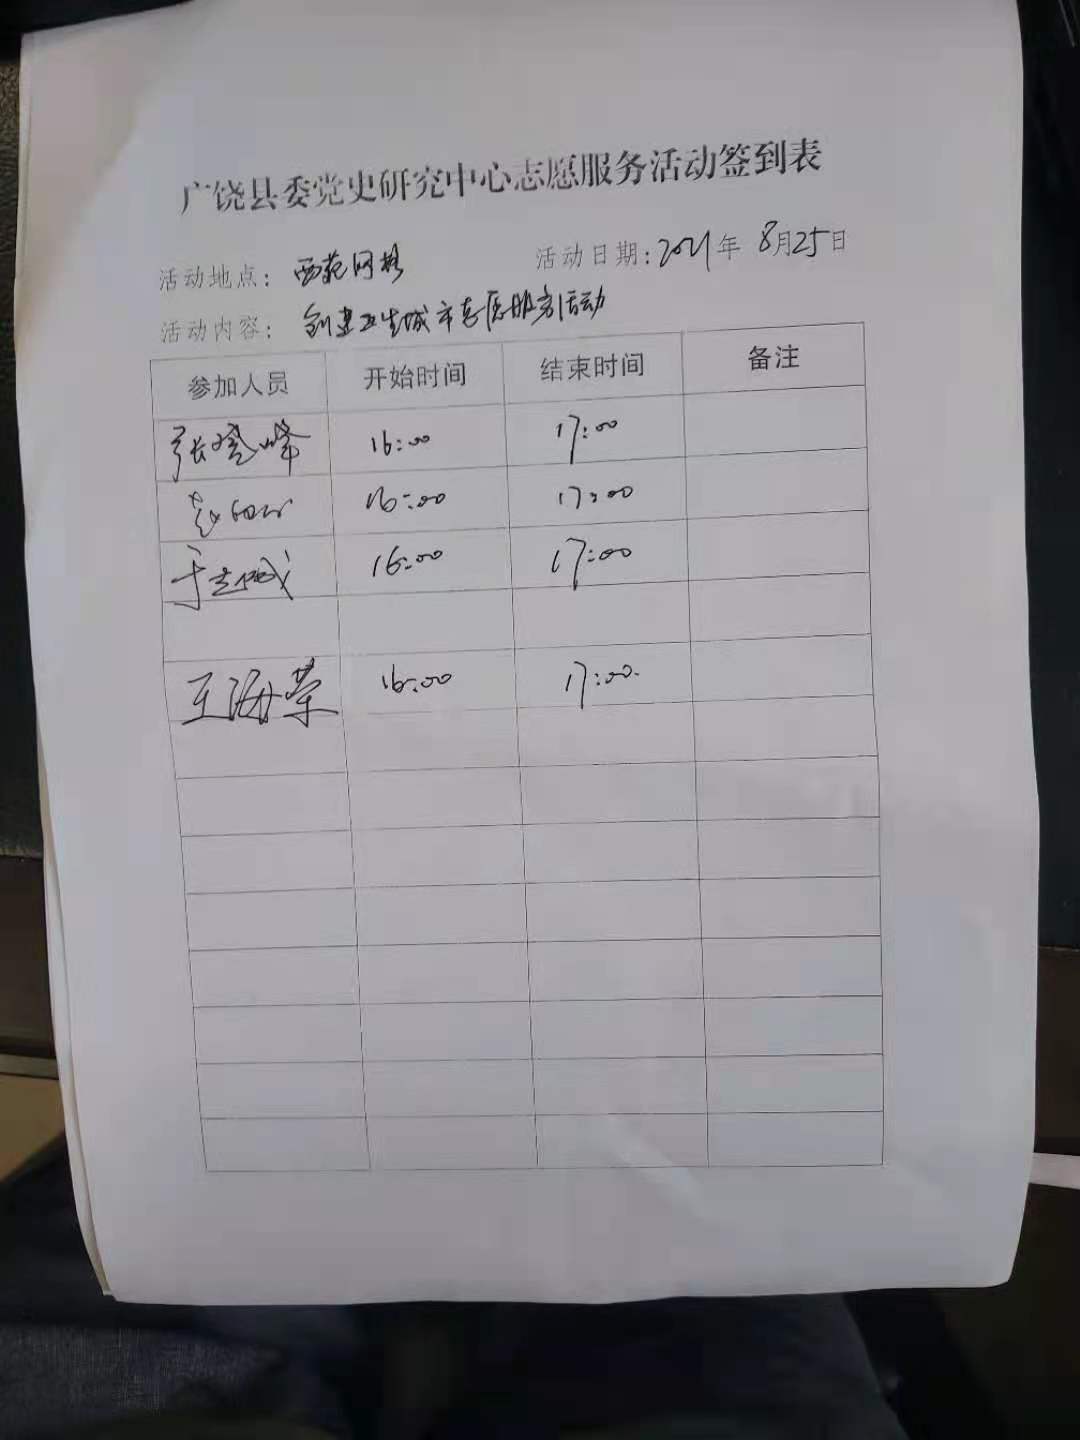 广饶县委党史研究中心志愿服务活动签到表
活动地点：西苑网格 活动日期：2021年 8月25日
活动内容：创建卫生城市志愿服务活动
参加人员 开始时间 结束时间 备注
张晓峰 16:00 17:00
16:00 17:00
于志城 16:00 17:00
王海荣 16:00 17:00.